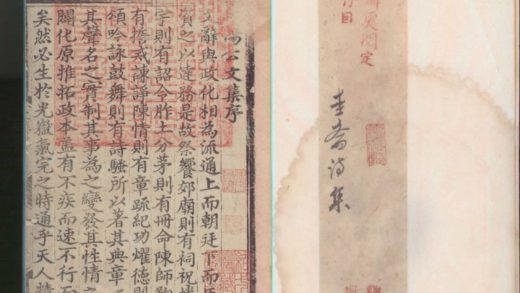 圭斋诗集
公文集序
文辭與政化相為流通上而朝廷下而
資之以達務是故祭饗郊廟則有祠祝
宇則有詔令胙土分茅則有冊命陳師
有誓戒諫諍陳情則有章疏紀功耀德
頌吟詠鼓舞則有詩騷所以著其典章
其聲名之實制其事為之變發其性情之
闢化原推拓政本蓋有不疾而速不行
矣然必生於光嶽氣完之時通乎天人